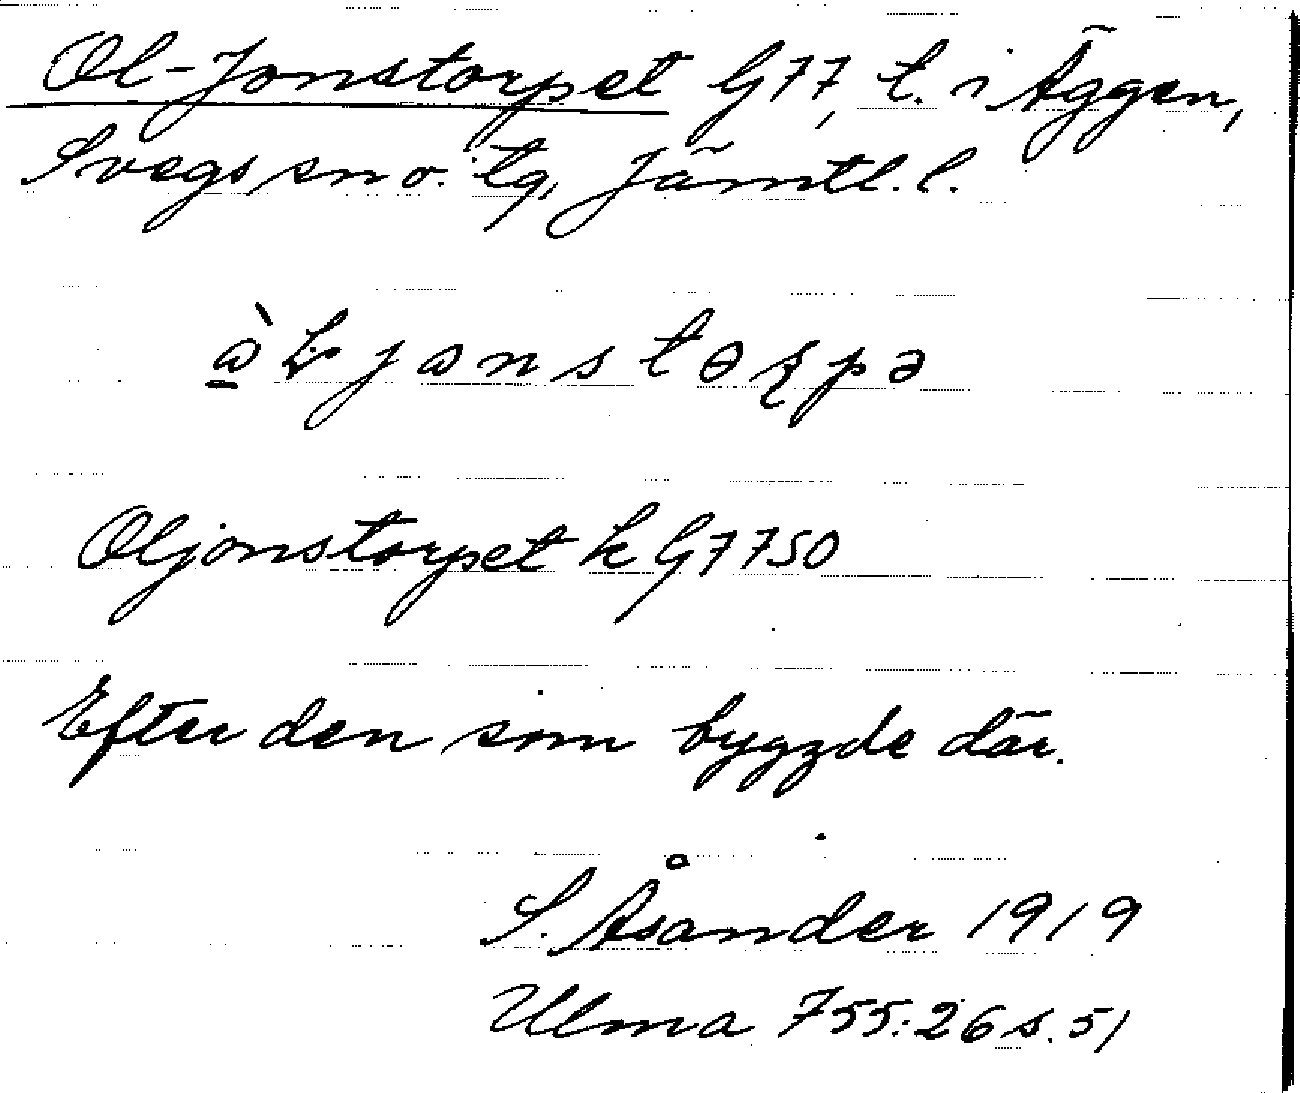 Ol-Jonstorpet G77, t. i Äggen,
Svegs sn o. tg, Jämtl. l.
Oljonstorpet k G7750
Efter den som byggde där.
S. Åsander 1919
Ulma 755:26 s. 51